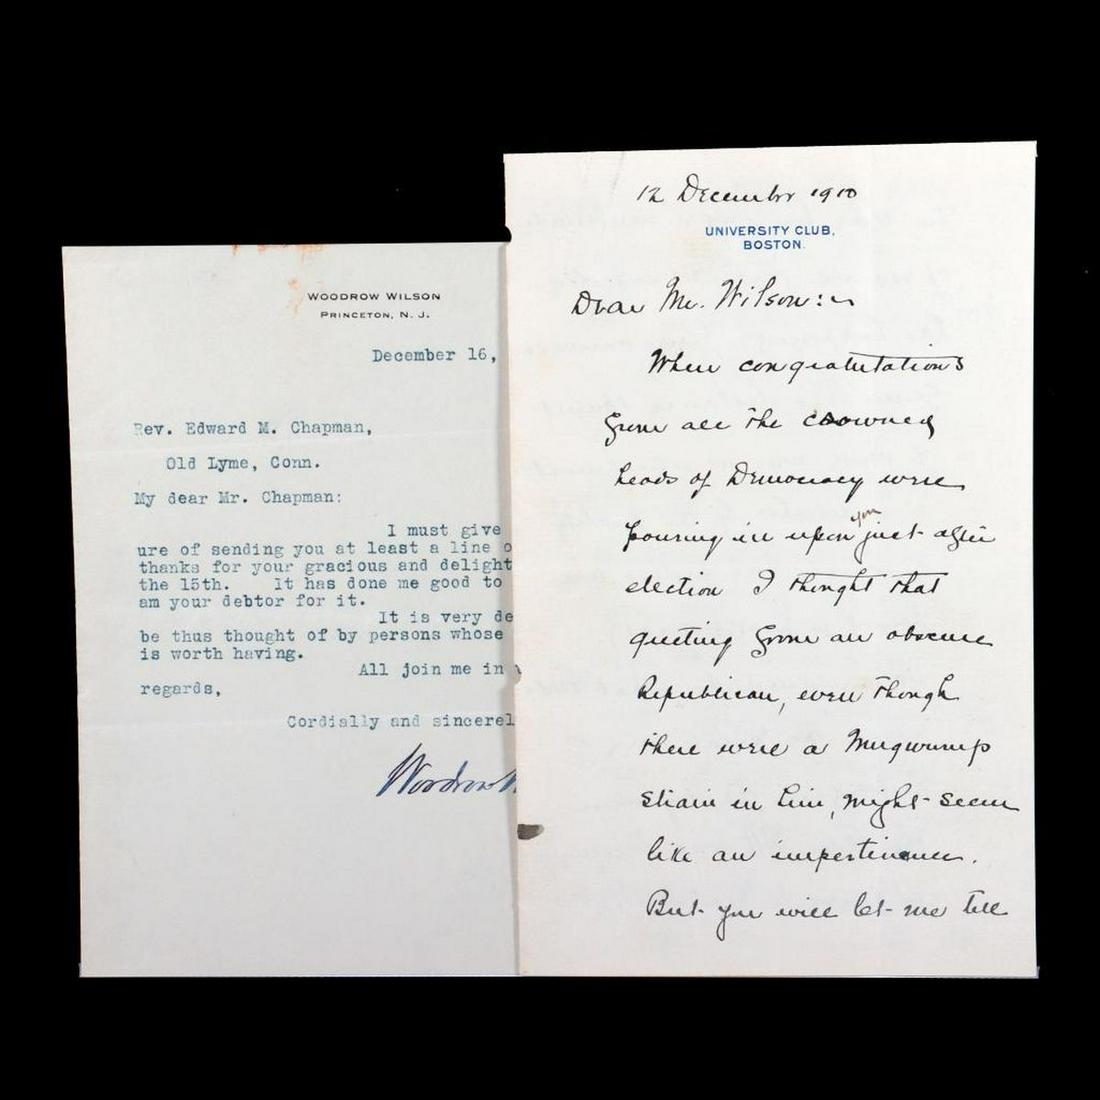 WOODROW WILSON
PRINCETON, N. J.
December 16,
Rev. Edward M. Chapman,
Old Lyme, Conn.
My dear Mr. Chapman:
I must give
ure of sending you at least a line o
thanks for your gracious and delight
the 15th. It has done me good to
am your debtor for it.
It is very de
be thus thought of by persons whose
is worth having.
All join me in
regards,
Cordially and sincerel
Woodrow W
12 December 1910
UNIVERSITY CLUB,
BOSTON.
Dear Mr. Wilson:
When congratutations
from all the crowned
heads of Democracy were
pouring in upon you just after
election I thought that
greeting from an obscure
Republican, even though
there were a Mugwump
strain in him, might seem
like an impertinence.
But you will let me tell